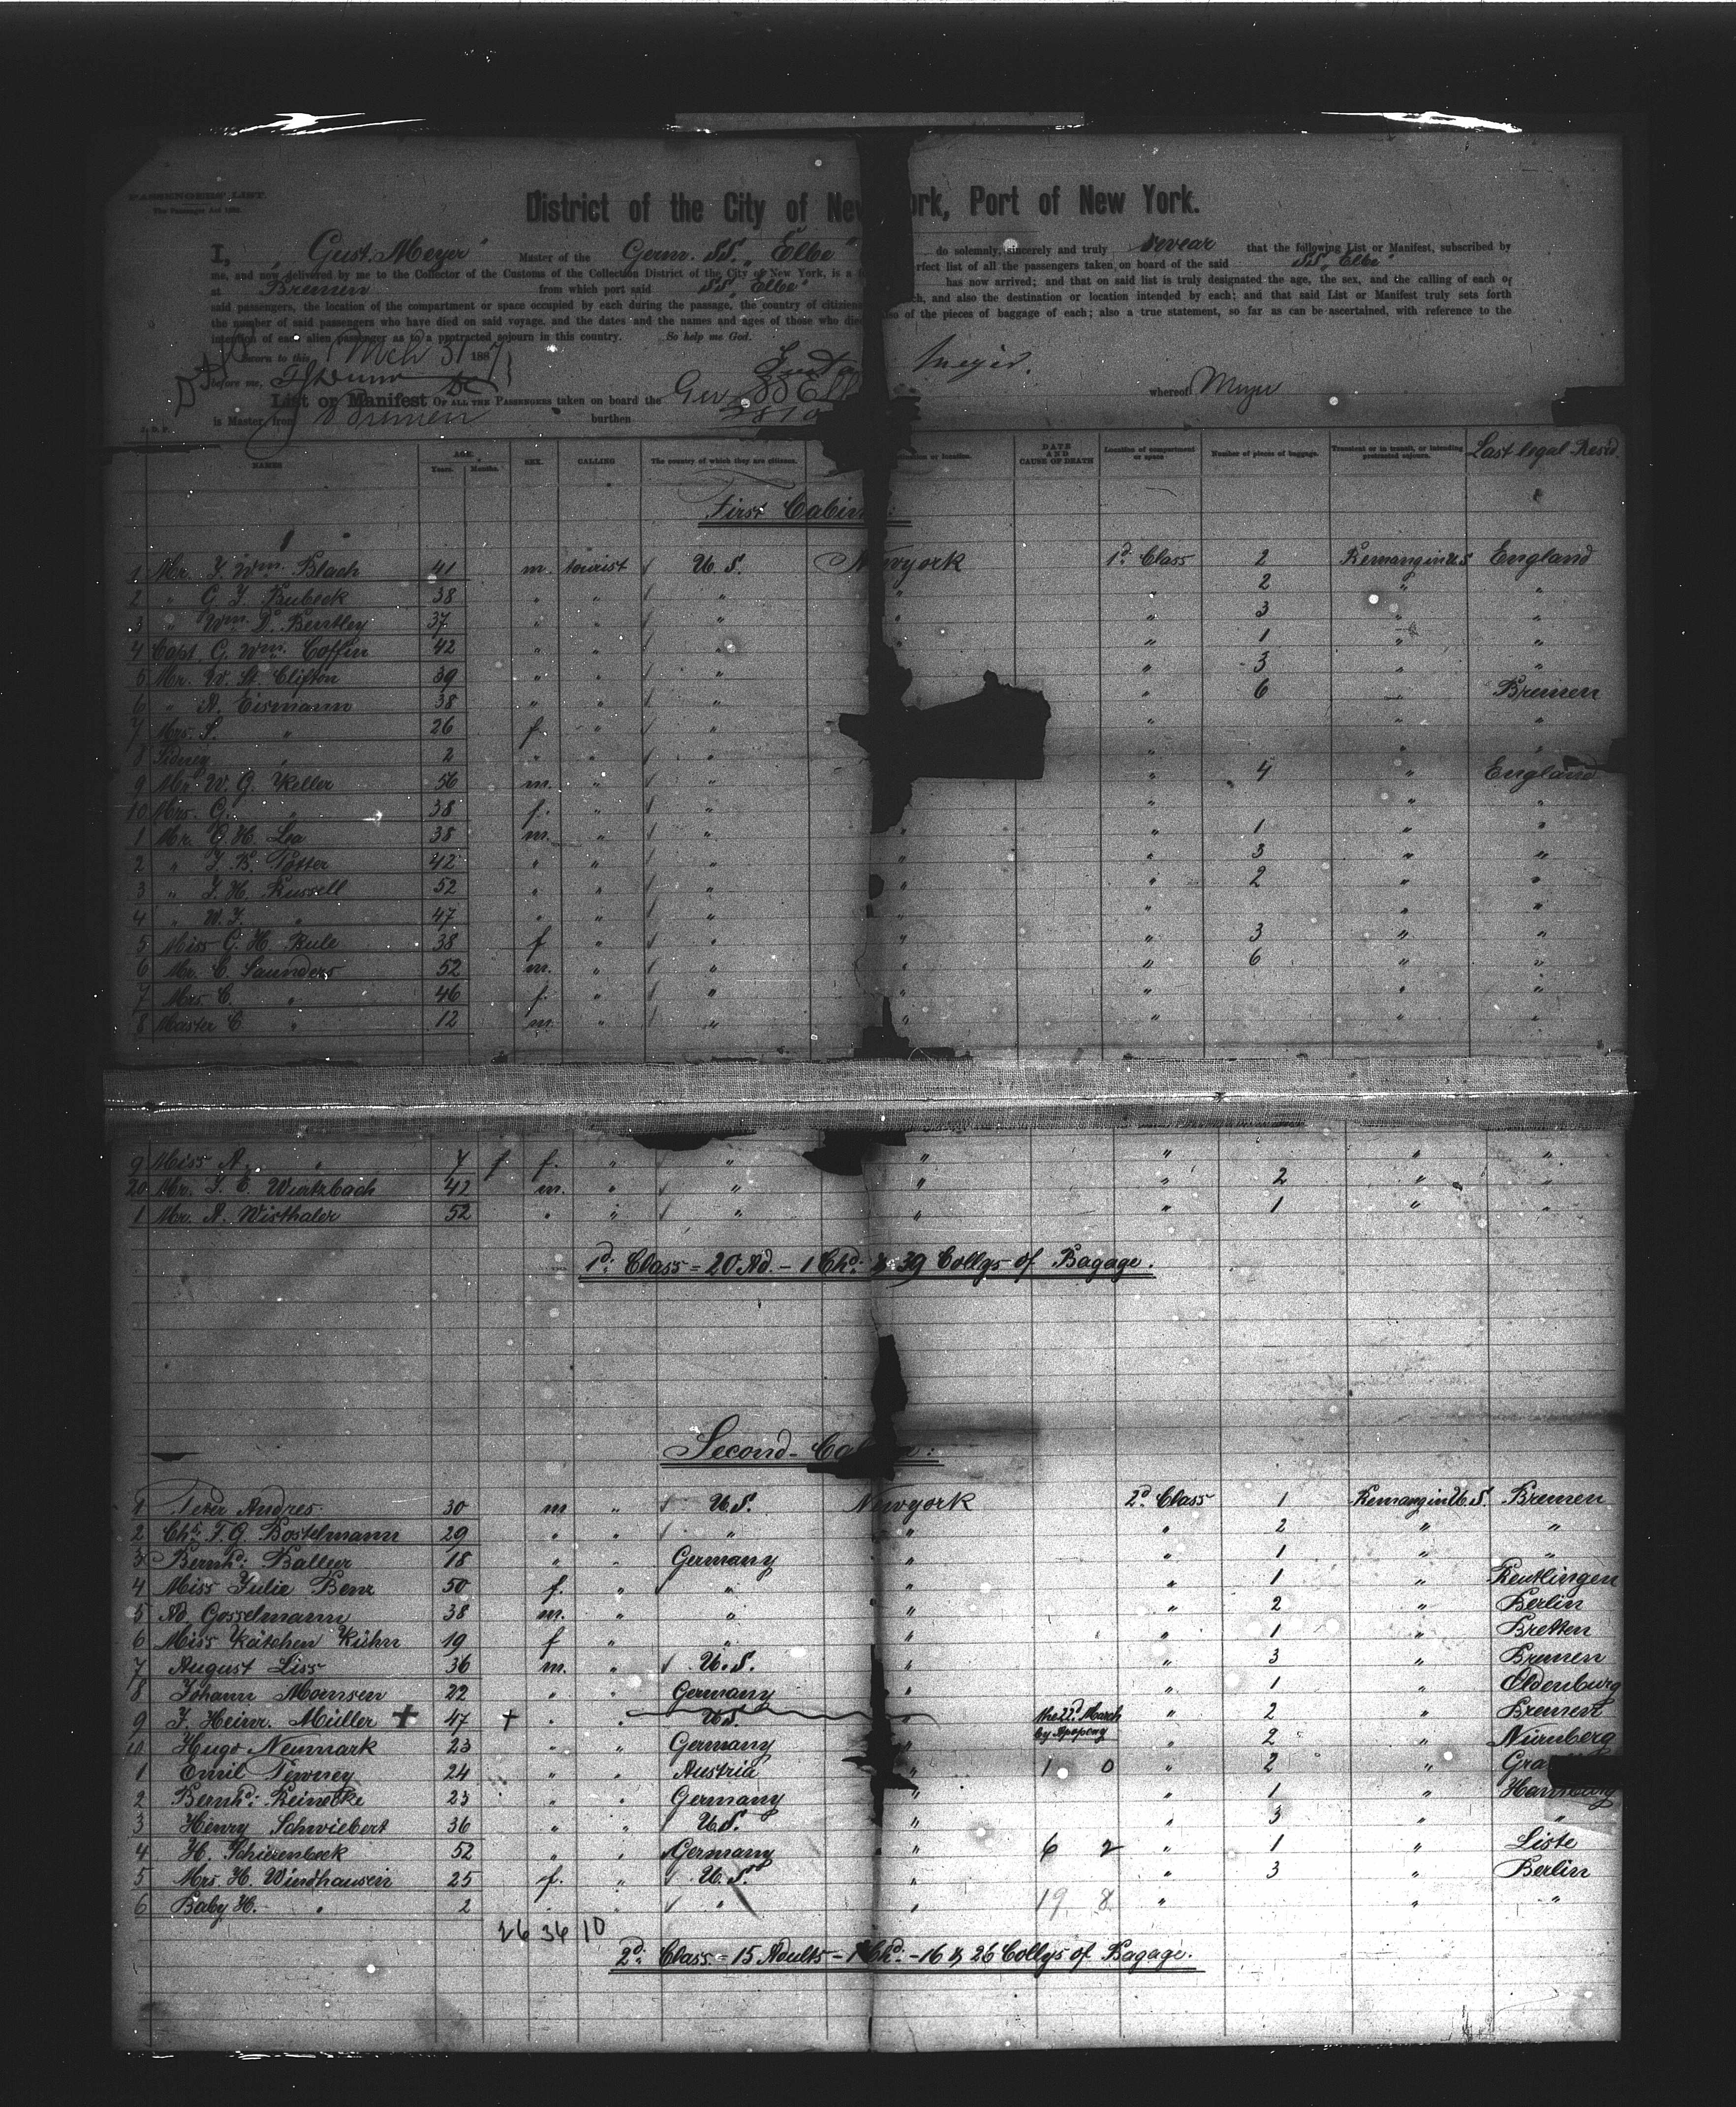 PASSENGERS' LIST.
The Passenger Act 1882.
District of the City of New York, Port of New York.
I, Gust. Meyer Master of the Germ. SS. "Elbe" do solemnly, sincerely and truly swear that the following List or Manifest, subscribed by
me, and now delivered by me to the Collector of the Customs of the Collection District of the City of New York, is a rfect list of all the passengers taken on board of the said SS. "Elbe"
at Bremen from which port said SS. "Elbe" has now arrived; and that on said list is truly designated the age, the sex, and the calling of each of
said passengers, the location of the compartment or space occupied by each during the passage, the country of citizens ch, and also the destination or location intended by each; and that said List or Manifest truly sets forth
the number of said passengers who have died on said voyage, and the dates and the names and ages of those who died also of the pieces of baggage of each; also a true statement, so far as can be ascertained, with reference to the
intention of each alien passenger as to a protracted sojourn in this country. So help me God.
Sworn to this Mch 31 1887
before me, Gust Meyer.
List or Manifest OF ALL THE PASSENGERS taken on board the Ger SS Elb whereof Meyer
is Master, from Bremen burthen
NAMES AGE. Years. Months. SEX. CALLING The country of which they are citizens. on or location. DATE AND CAUSE OF DEATH Location of compartment or space Number of pieces of baggage. Transient or in transit, or intending protracted sojourn. Last legal Resid.
First Cabin:
1 Mr. J. Wm. Blach 41 m. tourist U.S. Newyork 1d. Class 2 Remanging U.S England
2 " C. J. Bubeck 38 " " " " " 2 " "
3 " Wm. D. Bentley 37 " " " " " 3 " "
4 Capt. G. Wm. Coffin 42 " " " " " 1 " "
5 Mr. W. St. Clifton 39 " " " " 3 " "
6 " A. Eismann 38 " " " " 6 " Bremen
7 Mrs. S. " 26 f. " " " " "
8 Sidney " 2 " " " " " "
9 Mr. W. G. Keller 56 m. " " " 4 " England
10 Mrs. G. " 38 f. " " " " " "
1 Mr. G. H. Lea 38 m. " " " " 1 " "
2 " J. B. Potter 42 " " " " " 3 " "
3 " J. H. Russell 52 " " " " " 2 " "
4 " W. J. " 47 " " " " " " "
5 Miss C. H. Rule 38 f " " " " 3 " "
6 Mr. C. Saunders 52 m. " " " " 6 " "
7 Mrs C. " 46 f. " " " " " "
8 Master C " 12 m. " " " " " "
9 Miss A. " 7 f f. " " " " " "
20 Mr. J. E. Wurtzbach 42 m. " " " " 2 " "
1 Mr. A. Wisthaler 52 " " " " " 1 " "
1d: Class = 20 Ad. - 1 Chd: & 39 Collys of Bagage.
Second-Cabin:
1 Peter Andres 30 m " U.S. Newyork 2d. Class 1 Remanging U.S. Bremen
2 Chs. T. G. Bostelmann 29 " " " " " 2 " "
3 Bernhd: Balleer 18 " " Germany " " 1 " "
4 Miss Julie Benz 50 f. " " " " 1 " Reutlingen
5 Ad. Gosselmann 38 m. " " " " 2 " Berlin
6 Miss Kätchen Kühn 19 f " " " " 1 " Bretten
7 August Liss 36 m. " U.S. " " 3 " Bremen
8 Johann Mornsen 22 " " Germany " " 1 " Oldenburg
9 J. Heinr. Müller + 47 + " " U.S. " the 22d. March by Apopexy " 2 " Bremen
10 Hugo Neumark 23 " " Germany " " 2 " Nürnberg
1 Emil Tewney 24 " " Austria " 1 0 " 2 " Gra
2 Bernhd: Reinecke 23 " " Germany " " 1 " Hamburg
3 Henry Schwiebert 36 " " U.S. " " 3 " "
4 H. Schierenbeck 52 " " Germany " 6 2 " 1 " Liste
5 Mrs. H. Windhausen 25 f. " U.S. " " 3 " Berlin
6 Baby H. " 2 " " " " 19 8 " " "
26 36 10
2d: Class = 15 Adults - 1 Chd: - 16 & 26 Collys of Bagage.